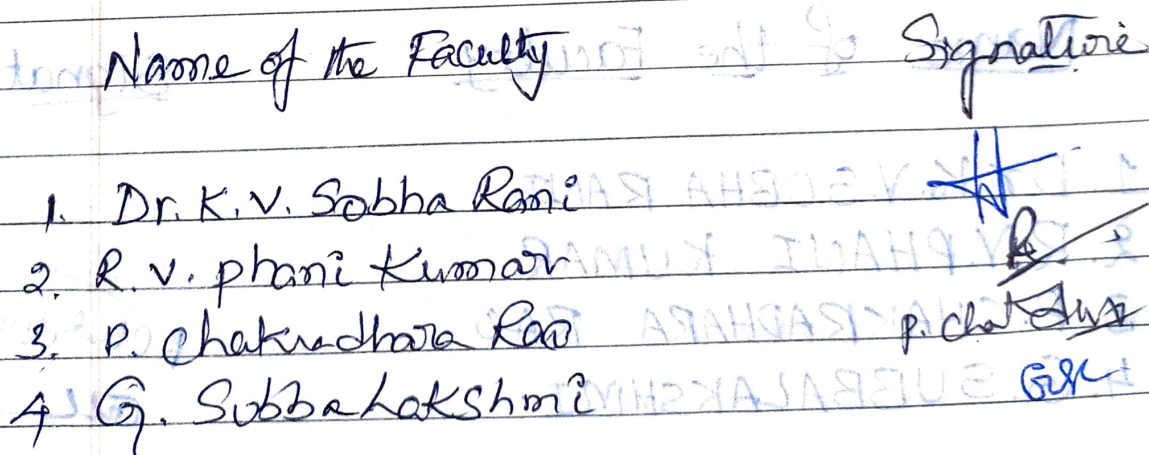 Name of the Faculty Signature
1. Dr. K. V. Sobha Rani
2. R. V. phani Kumar
3. P. Chakradhara Rao P. Cha
4 G. Subba Lakshmi